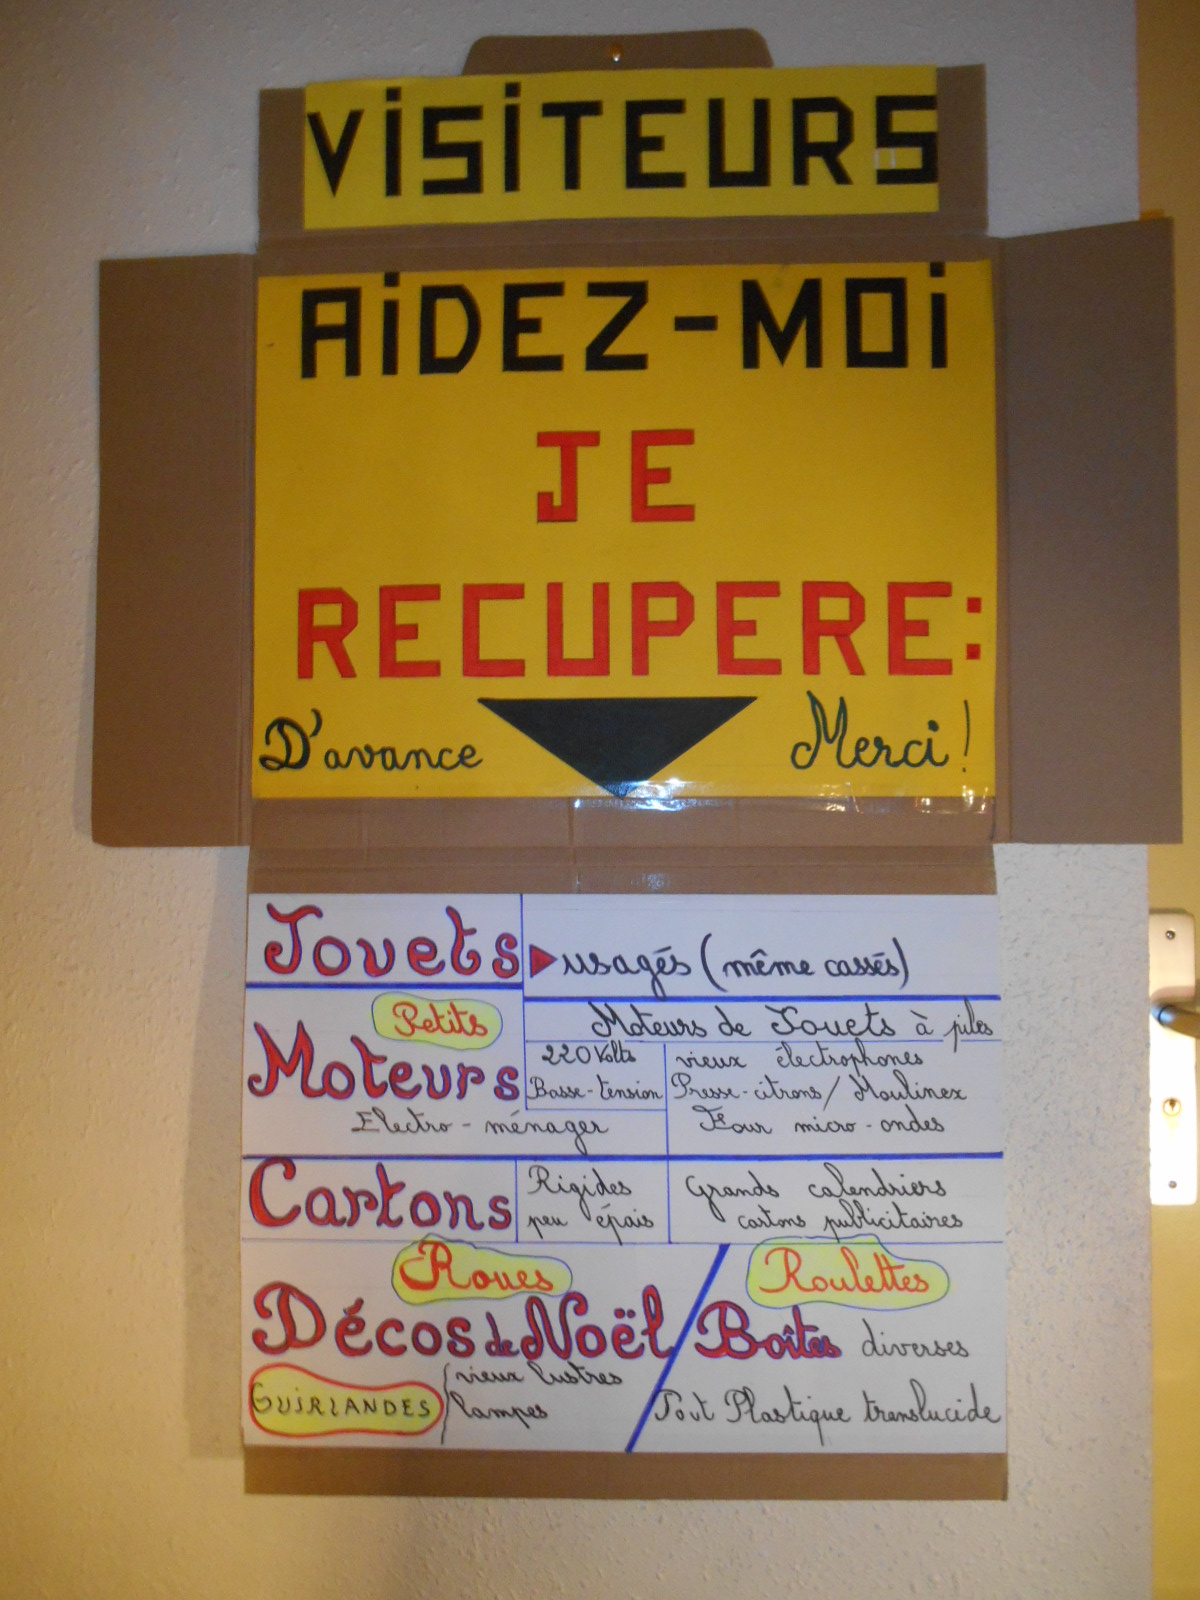 VISITEURS
AIDEZ-MOI
JE
RECUPERE:
D'avance Merci!
Jouets usagés (même cassés)
Petits
Moteurs
Moteurs de Jouets à piles
220 Volts
Basse-tension
vieux électrophones
Presse-citrons/ Moulinex
Four micro-ondes
Electro-ménager
Cartons
Rigides
peu épais
Grands calendriers
cartons publicitaires
Roues
Décos de Noël
GUIRLANDES
vieux lustres
lampes
Roulettes
Boîtes diverses
Tout Plastique translucide